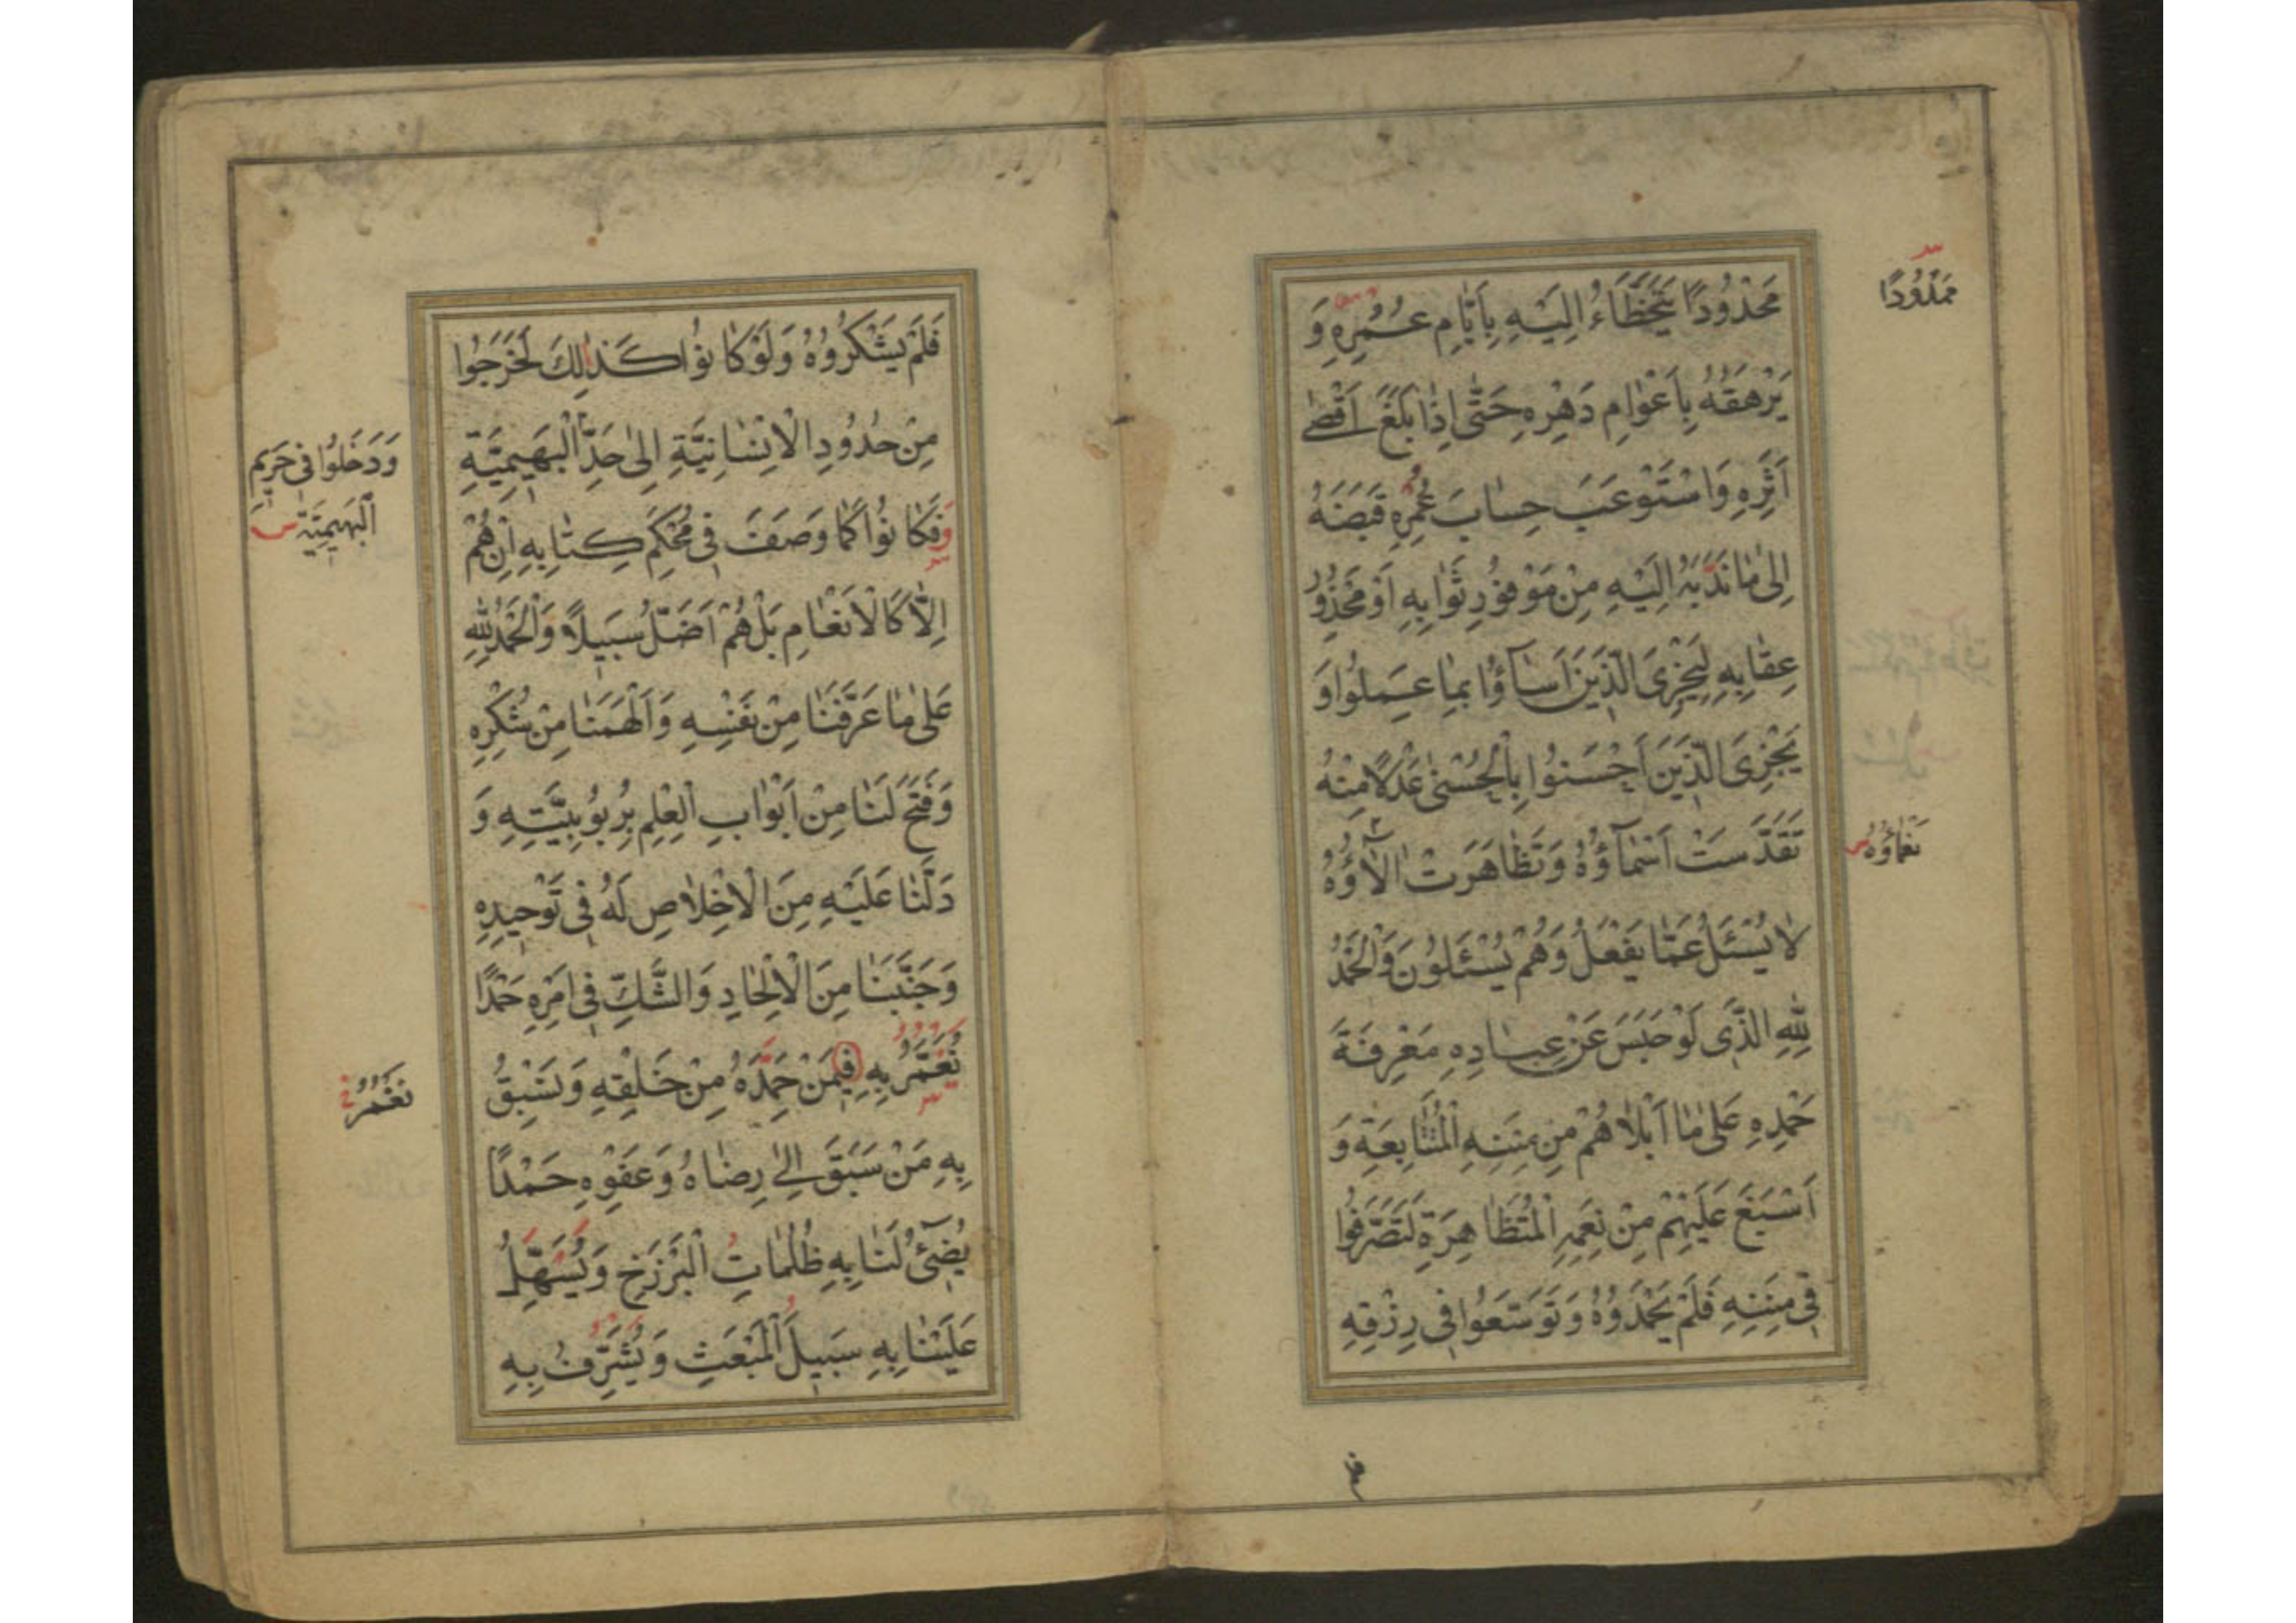 مَحْدُودًا يَتَخَطَّاءُ اِلَيْهِ بِاَيّٰامِ عُمُرِهِ وَ
يَرْهَقُهُ بِاَعْوٰامِ دَهْرِهِ حَتّٰى اِذٰا بَلَغَ اَقْصٰى
اَثَرِهِ وَاسْتَوْعَبَ حِسٰابَ عُمُرِهِ قَبَضَهُ
اِلىٰ مٰا نَدَبَهُ اِلَيْهِ مِنْ مَوْفُورِ ثَوٰابِهِ اَوْ مَحْذُورِ
عِقٰابِهِ لِيَجْزِىَ الَّذِينَ اَسٰاۤؤُا بِمٰا عَمِلُوا وَ
يَجْزِىَ الَّذِينَ اَحْسَنُوا بِالْحُسْنىٰ عَدْلًا مِنْهُ
تَقَدَّسَتْ اَسْمٰاۤؤُهُ وَتَظٰاهَرَتْ اٰلٰاۤؤُهُ
لٰا يُسْئَلُ عَمّٰا يَفْعَلُ وَهُمْ يُسْئَلُونَ وَالْحَمْدُ
لِلّٰهِ الَّذِى لَوْ حَبَسَ عَنْ عِبٰادِهِ مَعْرِفَةَ
حَمْدِهِ عَلىٰ مٰا اَبْلٰاهُمْ مِنْ مِنَنِهِ الْمُتَتٰابِعَةِ وَ
اَسْبَغَ عَلَيْهِمْ مِنْ نِعَمِهِ الْمُتَظٰاهِرَةِ لَتَصَرَّفُوا
فِى مِنَنِهِ فَلَمْ يَحْمَدُوهُ وَتَوَسَّعُوا فِى رِزْقِهِ
مَمْدُودًا
نَعْمٰاؤُهُ س
فَلَمْ يَشْكُرُوهُ وَلَوْ كٰانُوا كَذٰلِكَ لَخَرَجُوا
مِنْ حُدُودِ الْاِنْسٰانِيَّةِ اِلىٰ حَدِّ الْبَهِيمِيَّةِ
وَفَكٰانُوا كَمٰا وَصَفَ فِى مُحْكَمِ كِتٰابِهِ اِنْ هُمْ
اِلّٰا كَالْاَنْعٰامِ بَلْ هُمْ اَضَلُّ سَبِيلًا وَالْحَمْدُ لِلّٰهِ
عَلىٰ مٰا عَرَّفَنٰا مِنْ نَفْسِهِ وَاَلْهَمَنٰا مِنْ شُكْرِهِ
وَفَتَحَ لَنٰا مِنْ اَبْوٰابِ الْعِلْمِ بِرُبُوبِيَّتِهِ وَ
دَلَّنٰا عَلَيْهِ مِنَ الْاِخْلٰاصِ لَهُ فِى تَوْحِيدِهِ
وَجَنَّبَنٰا مِنَ الْاِلْحٰادِ وَالشَّكِّ فِى اَمْرِهِ حَمْدًا
نُعَمَّرُ بِهِ فِيمَنْ حَمِدَهُ مِنْ خَلْقِهِ وَنَسْبِقُ
بِهِ مَنْ سَبَقَ اِلىٰ رِضٰاهُ وَعَفْوِهِ حَمْدًا
يُضِىۤءُ لَنٰا بِهِ ظُلُمٰاتِ الْبَرْزَخِ وَيُسَهِّلُ
عَلَيْنٰا بِهِ سَبِيلَ الْمَبْعَثِ وَيُشَرِّفُ بِهِ
وَدَخَلُوا فِى حَرِيمِ
الْبَهِيمِيَّةِ س
نَعْمُرُ